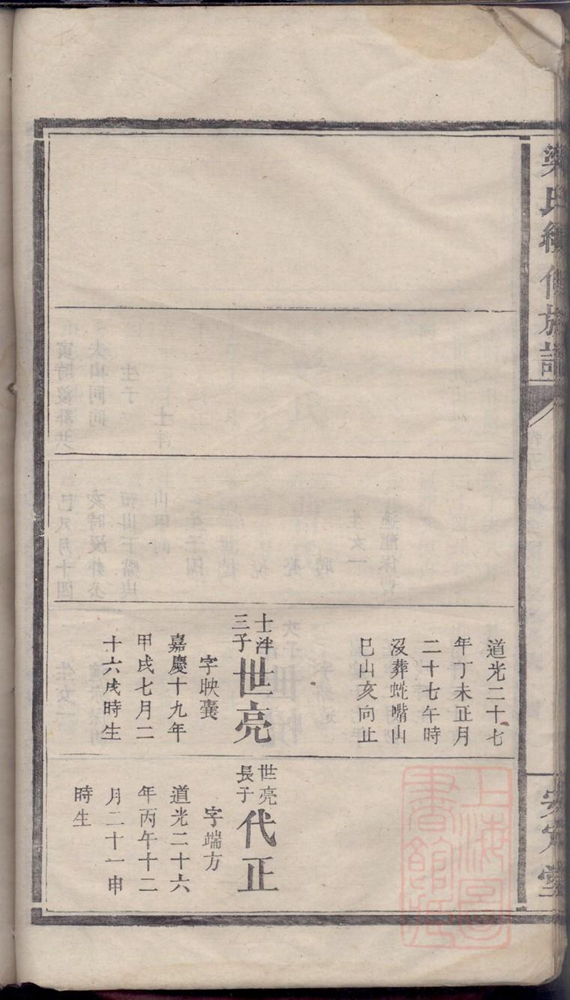 梁氏續修族譜
安定堂
道光二十七
年丁未正月
二十七午時
沒葬蜣嘴山
巳山亥向止
士泮
三子
世亮
字映囊
嘉慶十九年
甲戌七月二
十六戌時生
世亮
長子
代正
字端方
道光二十六
年丙午十二
月二十一申
時生
上海圖
書館藏